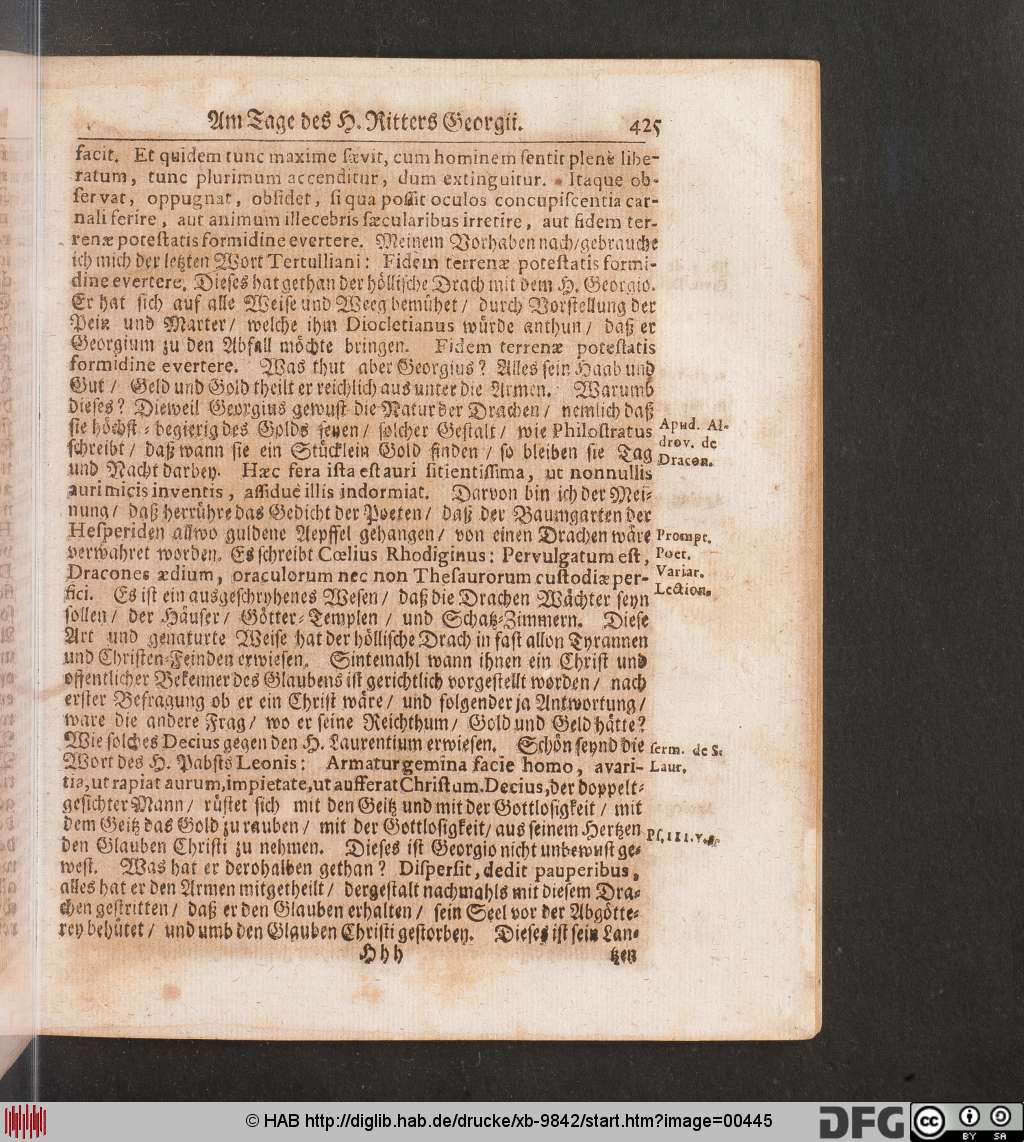 Am Tage des H. Ritters Georgii. 425
facit. Et quidem tunc maxime sævit, cum hominem sentit plenè libe-
ratum, tunc plurimum accenditur, dum extinguitur. Itaque ob-
servat, oppugnat, obsidet, si qua possit oculos concupiscentia car-
nali ferire, aut animum illecebris sæcularibus irretire, aut fidem ter-
renæ potestatis formidine evertere. Meinem Vorhaben nach/gebrauche
ich mich der letzten Wort Tertulliani: Fidem terrenæ potestatis formi-
dine evertere. Dieses hat gethan der höllische Drach mit dem H. Georgio.
Er hat sich auf alle Weise und Weeg bemühet/ durch Vorstellung der
Pein und Marter/ welche ihm Diocletianus würde anthun/ daß er
Georgium zu den Abfall möchte bringen. Fidem terrenæ potestatis
formidine evertere. Was thut aber Georgius? Alles sein Haab und
Gut/ Geld und Gold theilt er reichlich aus unter die Armen. Warumb
dieses? Dieweil Georgius gewust die Natur der Drachen/ nemlich daß
sie höchst-begierig des Golds seyen/ solcher Gestalt/ wie Philostratus
schreibt/ daß wann sie ein Stücklein Gold finden/ so bleiben sie Tag
und Nacht darbey. Hæc fera ista est auri sitientissima, ut nonnullis
auri micis inventis, assiduè illis indormiat. Darvon bin ich der Mei-
nung/ daß herrühre das Gedicht der Poeten/ daß der Baumgarten der
Hesperiden allwo guldene Aepffel gehangen/ von einen Drachen wäre
verwahret worden. Es schreibt Cœlius Rhodiginus: Pervulgatum est,
Dracones ædium, oraculorum nec non Thesaurorum custodiæ per-
fici. Es ist ein ausgeschryhenes Wesen/ daß die Drachen Wächter seyn
sollen/ der Häuser/ Götter-Templen/ und Schatz-Zimmern. Diese
Art und genaturte Weise hat der höllische Drach in fast allon Tyrannen
und Christen-Feinden erwiesen. Sintemahl wann ihnen ein Christ und
offentlicher Bekenner des Glaubens ist gerichtlich vorgestellt worden/ nach
erster Befragung ob er ein Christ wäre/ und folgender ja Antwortung/
ware die andere Frag/ wo er seine Reichthum/ Gold und Geld hätte?
Wie solches Decius gegen den H. Laurentium erwiesen. Schön seynd die
Wort des H. Pabsts Leonis: Armatur gemina facie homo, avari-
tia, ut rapiat aurum, impietate, ut aufferat Christum. Decius, der doppelt-
gesichter Mann/ rüstet sich mit den Geitz und mit der Gottlosigkeit/ mit
dem Geitz das Gold zu rauben/ mit der Gottlosigkeit/ aus seinem Hertzen
den Glauben Christi zu nehmen. Dieses ist Georgio nicht unbewust ge-
west. Was hat er derohalben gethan? Dispersit, dedit pauperibus,
alles hat er den Armen mitgetheilt/ dergestalt nachmahls mit diesem Dra-
chen gestritten/ daß er den Glauben erhalten/ sein Seel vor der Abgötte-
rey behütet/ und umb den Glauben Christi gestorben. Dieses ist sein Lan-
Hhh tzen
Apud. Al-
drov. de
Dracon.
Prompt.
Poet.
Variar.
Lection.
serm. de S.
Laur.
Ps. 111. v.
© HAB http://diglib.hab.de/drucke/xb-9842/start.htm?image=00445
DFG
cc BY SA